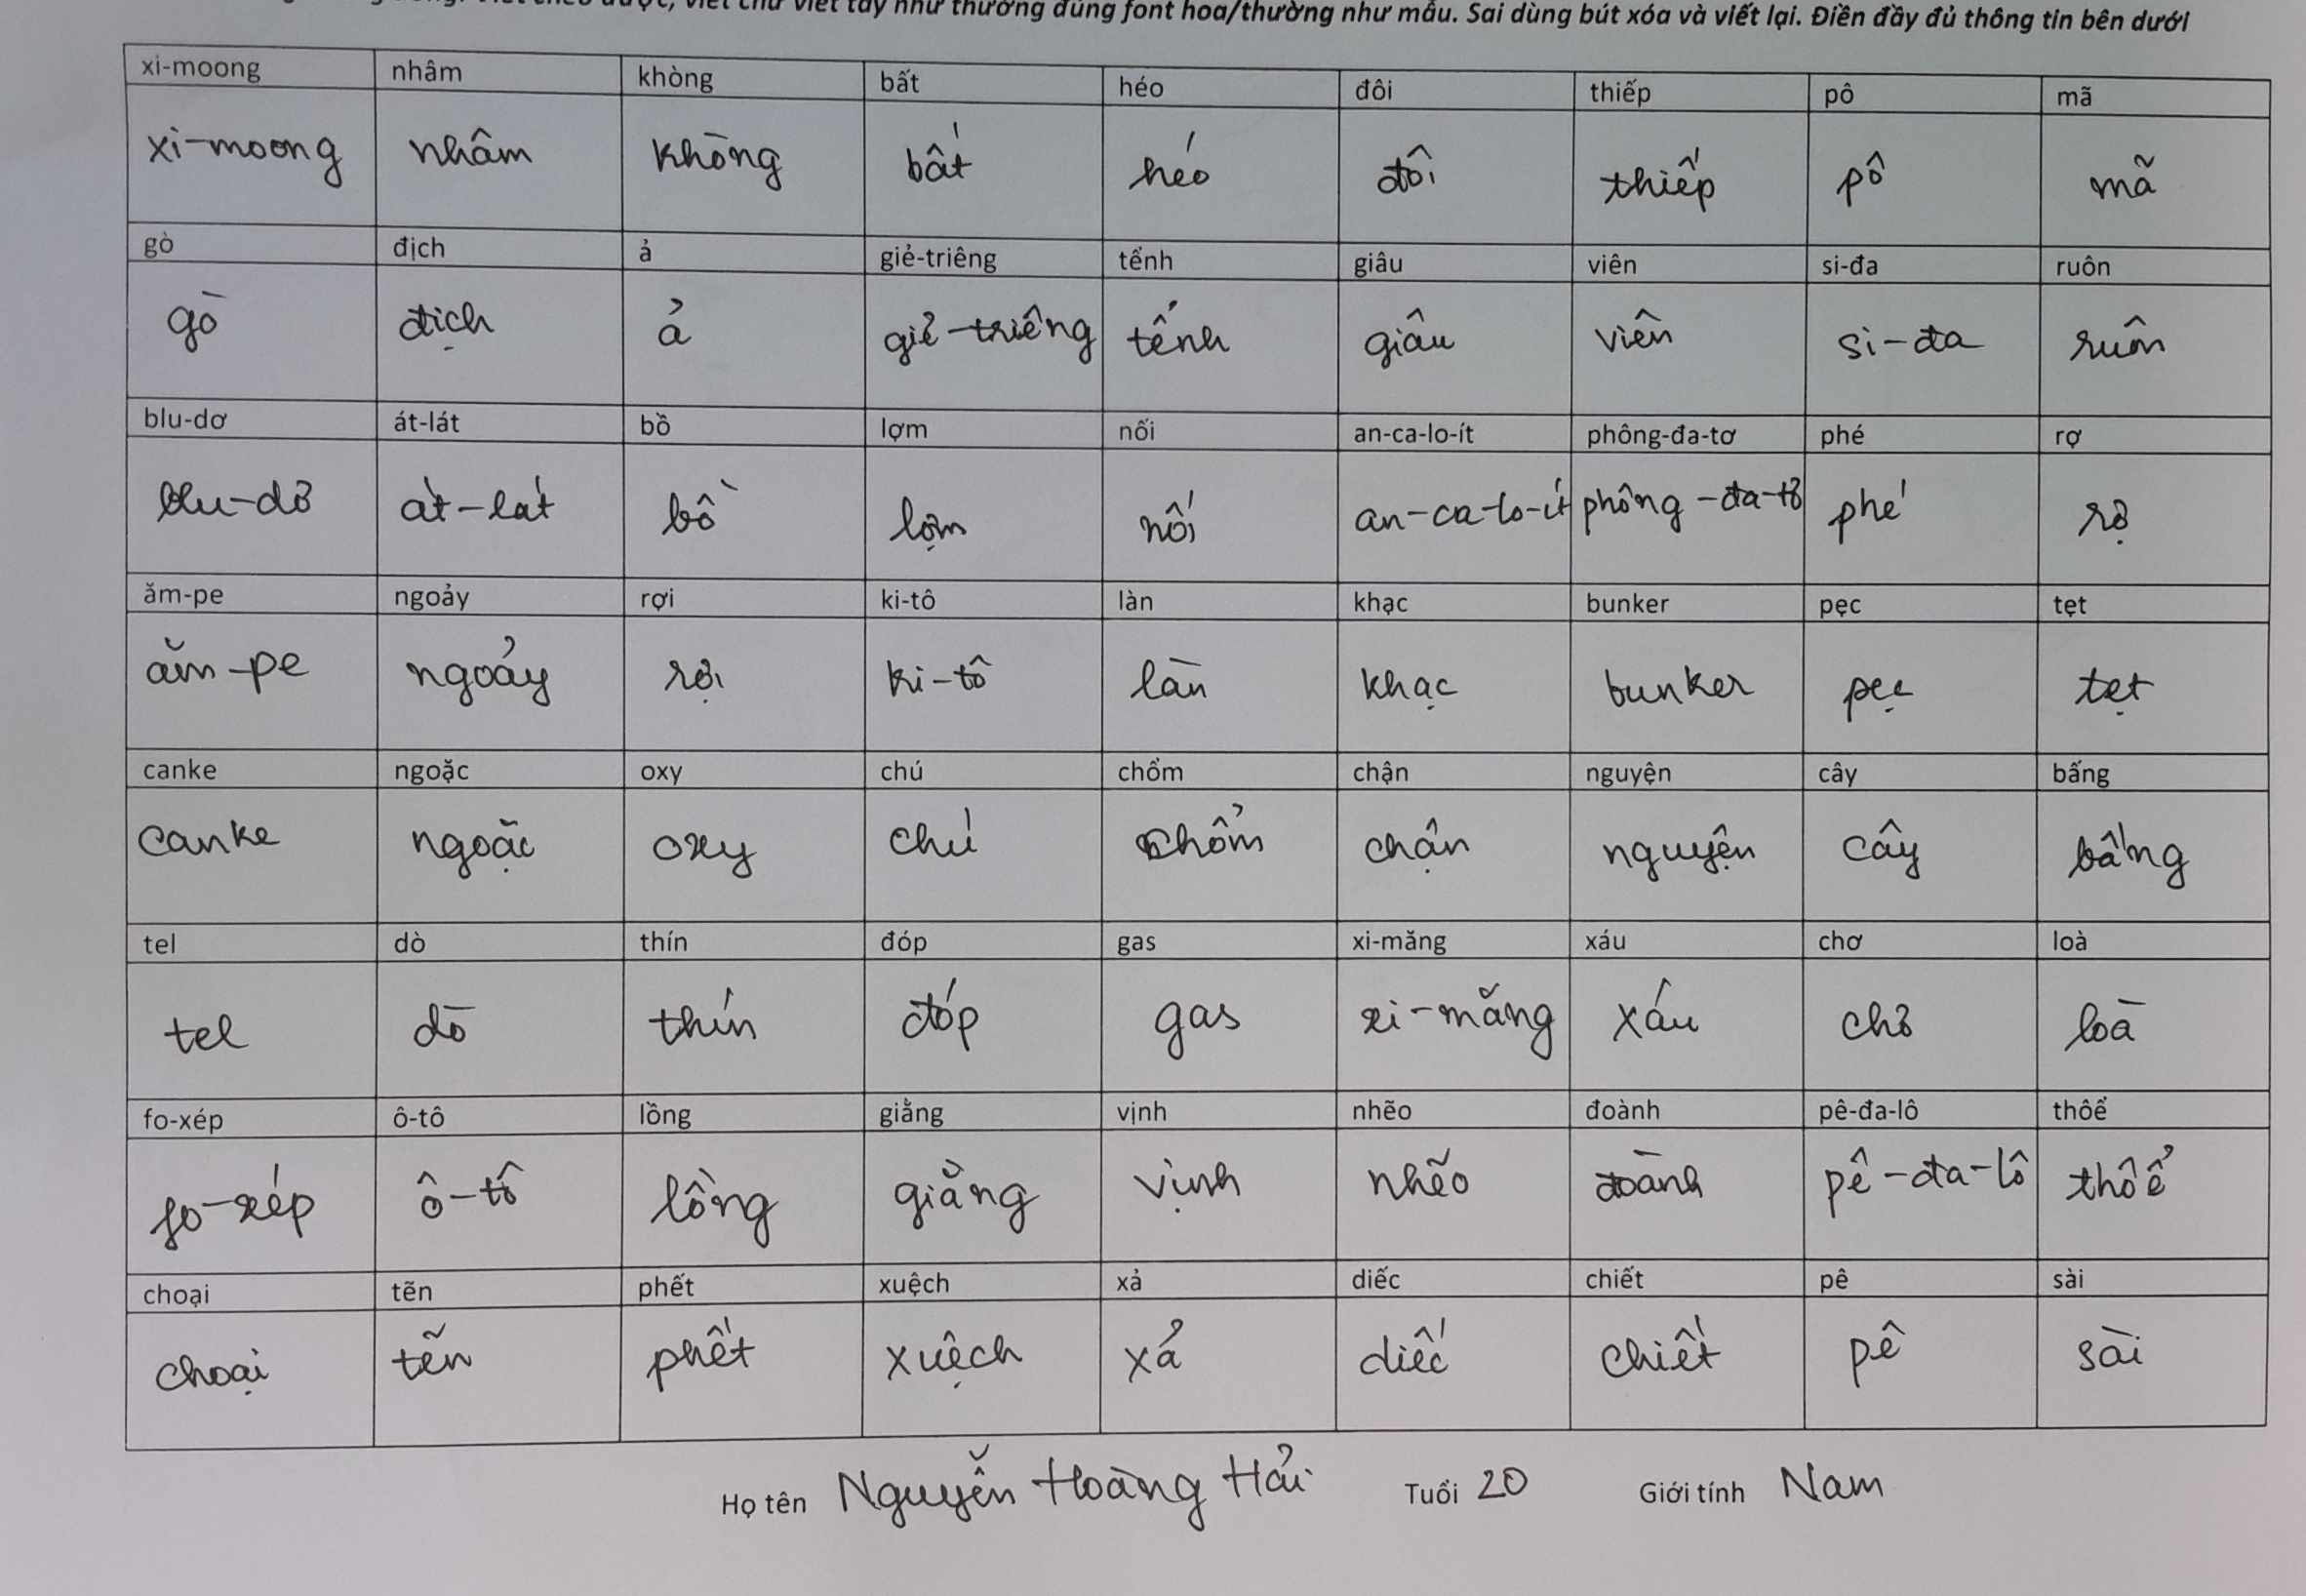 viết chữ viết tay như thường đúng font hoa/thường như mẫu. Sai dùng bút xóa và viết lại. Điền đầy đủ thông tin bên dưới
xi-moong nhâm khòng bất héo đôi thiếp pô mã
xi-moong nhâm khòng bất héo đôi thiếp pô mã
gò địch ả giẻ-triêng tểnh giâu viên si-đa ruôn
gò địch ả giẻ-triêng tểnh giâu viên si-đa ruôn
blu-dơ át-lát bồ lợm nối an-ca-lo-ít phông-đa-tơ phé rợ
blu-dơ át-lát bồ lợm nối an-ca-lo-ít phông-đa-tơ phé rợ
ăm-pe ngoảy rợi ki-tô làn khạc bunker pẹc tẹt
ăm-pe ngoảy rợi ki-tô làn khạc bunker pẹc tẹt
canke ngoặc oxy chú chổm chận nguyện cây bấng
canke ngoặc oxy chú chổm chận nguyện cây bấng
tel dò thín đóp gas xi-măng xáu chơ loà
tel dò thín đóp gas xi-măng xáu chơ loà
fo-xép ô-tô lồng giằng vịnh nhẽo đoành pê-đa-lô thôể
fo-xép ô-tô lồng giằng vịnh nhẽo đoành pê-đa-lô thôể
choại tẽn phết xuệch xả diếc chiết pê sài
choại tẽn phết xuệch xả diếc chiết pê sài
Họ tên Nguyễn Hoàng Hải Tuổi 20 Giới tính Nam